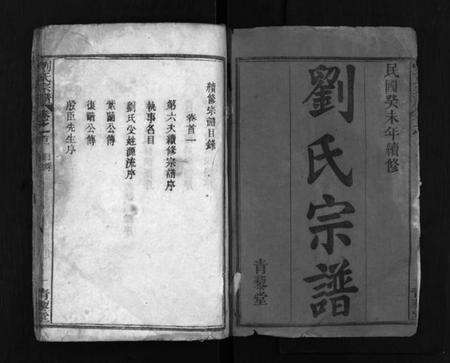 民國癸未年續修
劉氏宗譜
青藜堂
續修宗譜目錄
卷首一
第六夭續修宗譜序
執事名目
劉氏受姓源流序
紫嗣公傳
復嗣公傳
殷臣先生序
劉氏宗譜
青藜堂